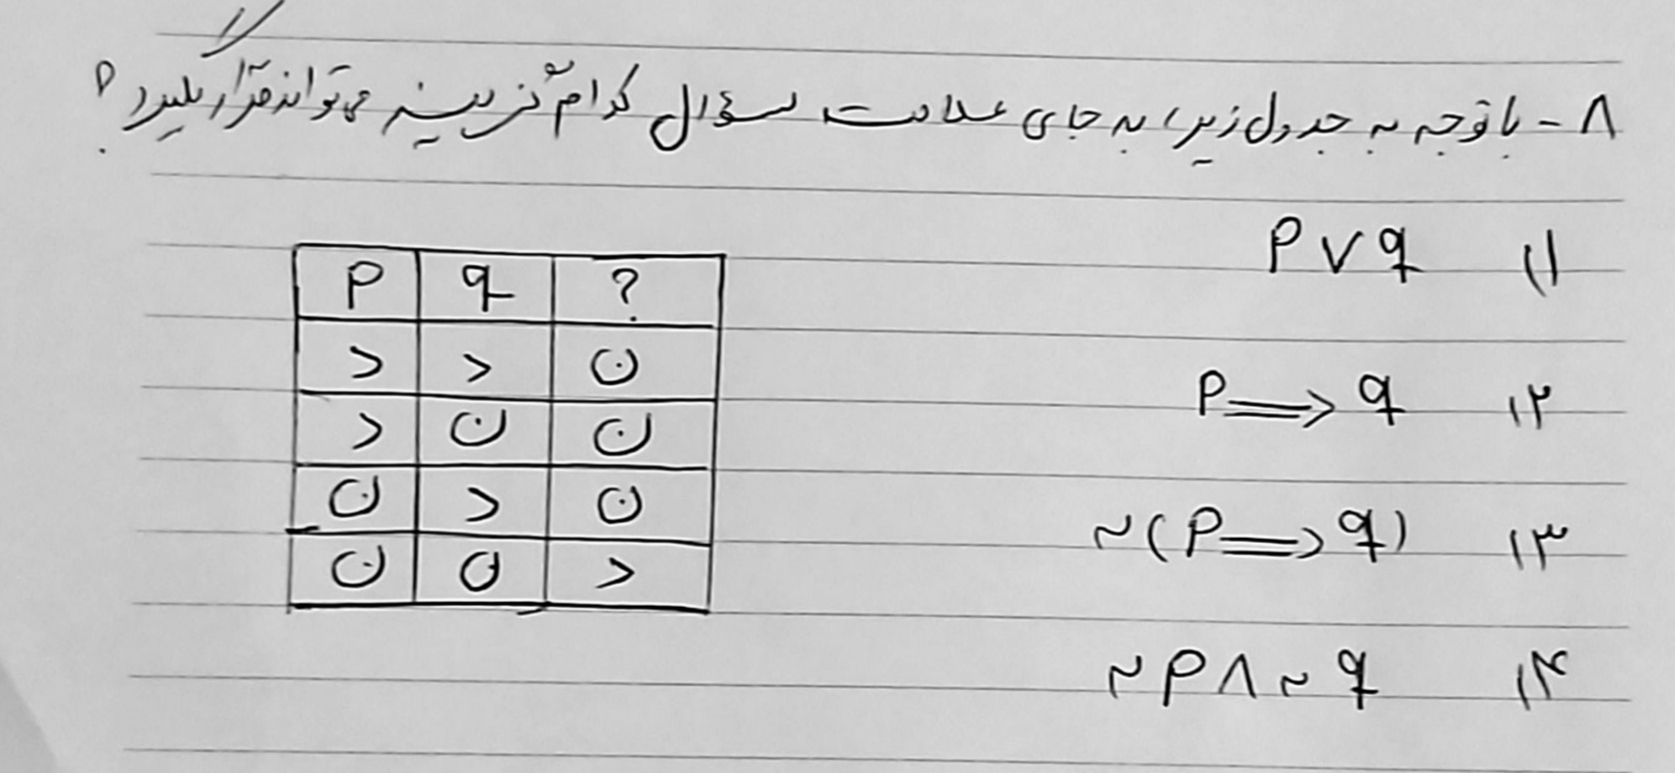 ۸- با توجه به جدول زیر، به جای علامت سؤال کدام گزینه می تواند قرار گیرد؟
۱) p ∨ q
۲) p ⟹ q
۳) ~(p ⟹ q)
۴) ~p ∧ ~q
p q ?
د د ن
د ن ن
ن د ن
ن ن د